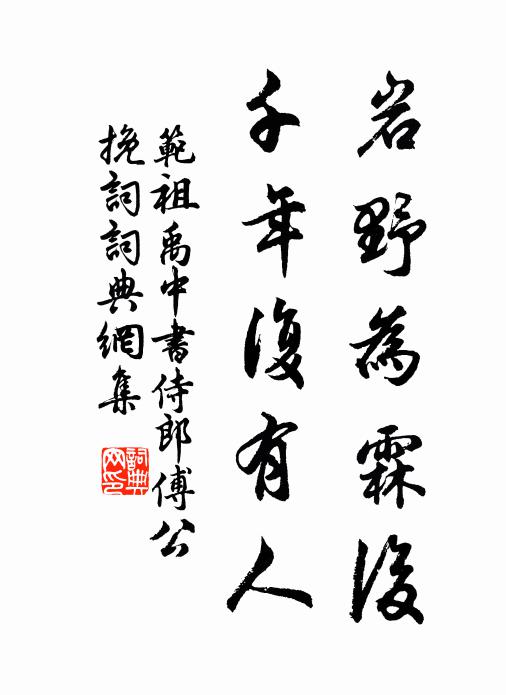 岩野為霖後
千年復有人
範祖禹中書侍郎傅公
挽詞詞典網集
詞典網印